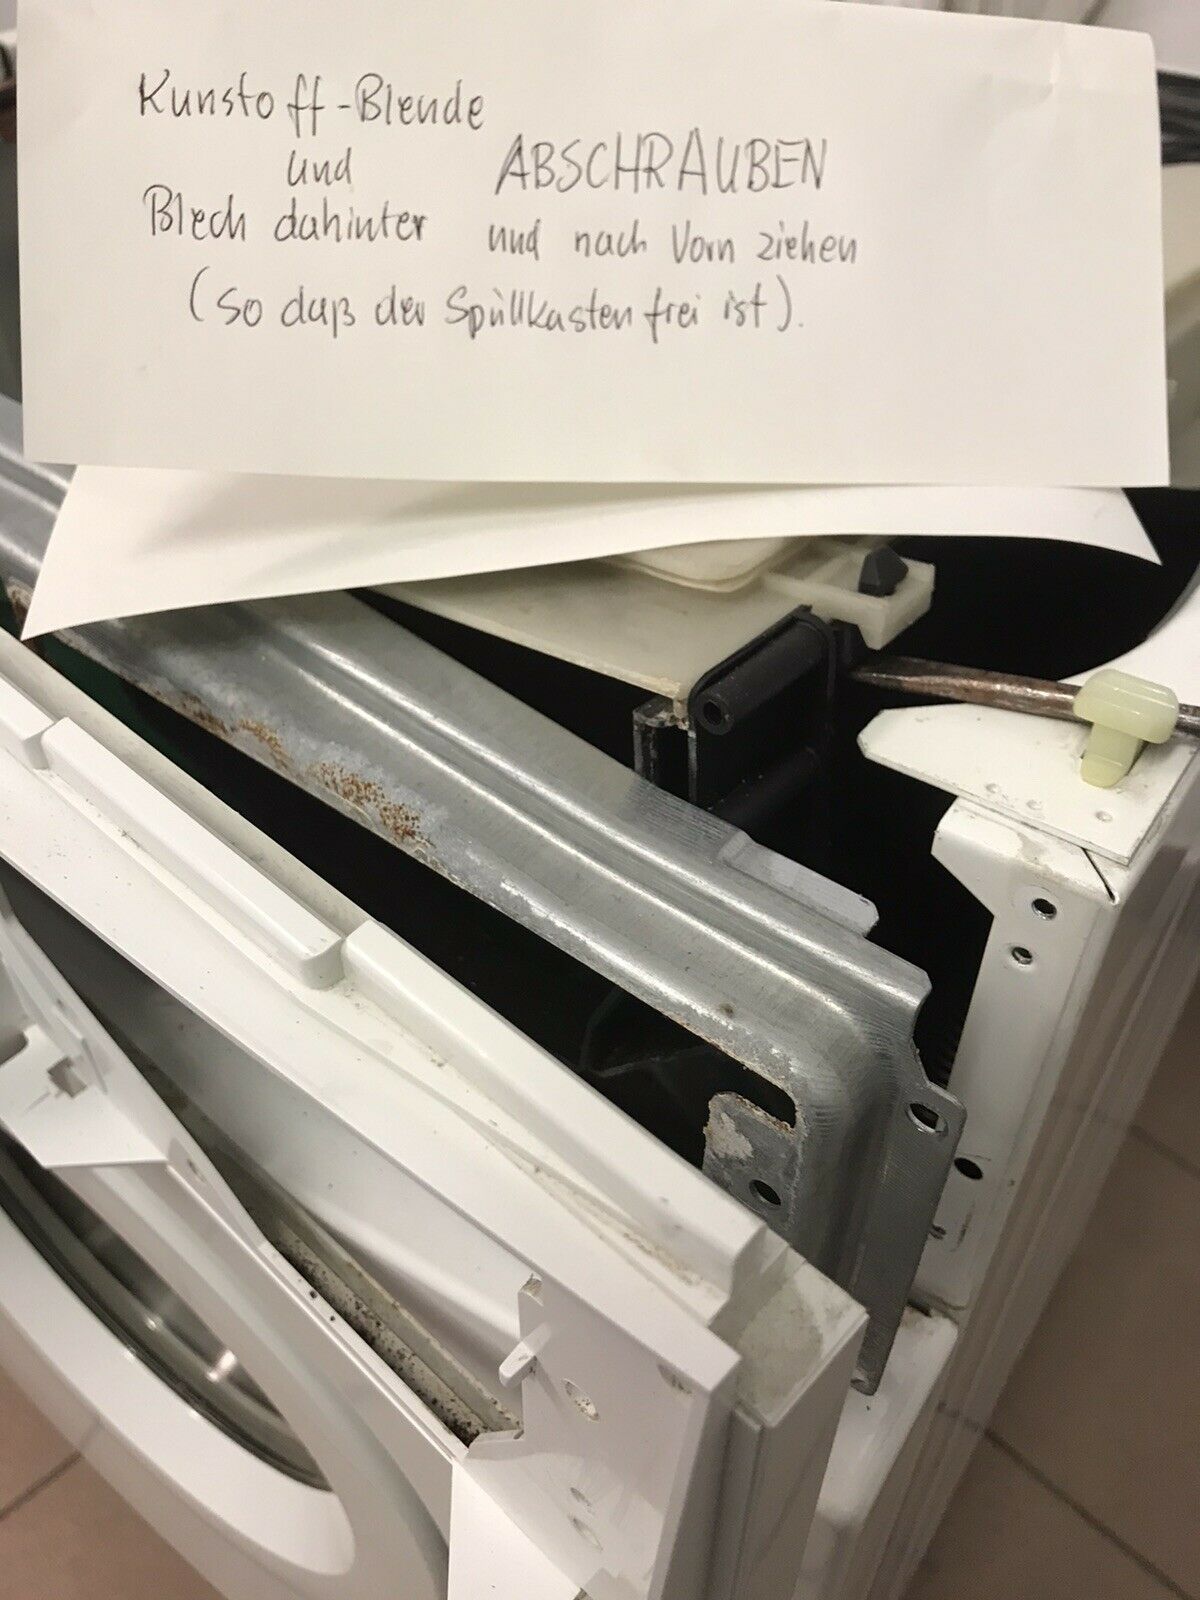 Kunstoff-Blende
und
ABSCHRAUBEN
Blech dahinter
und nach Vorn ziehen
(So daß der Spüllkasten frei ist).